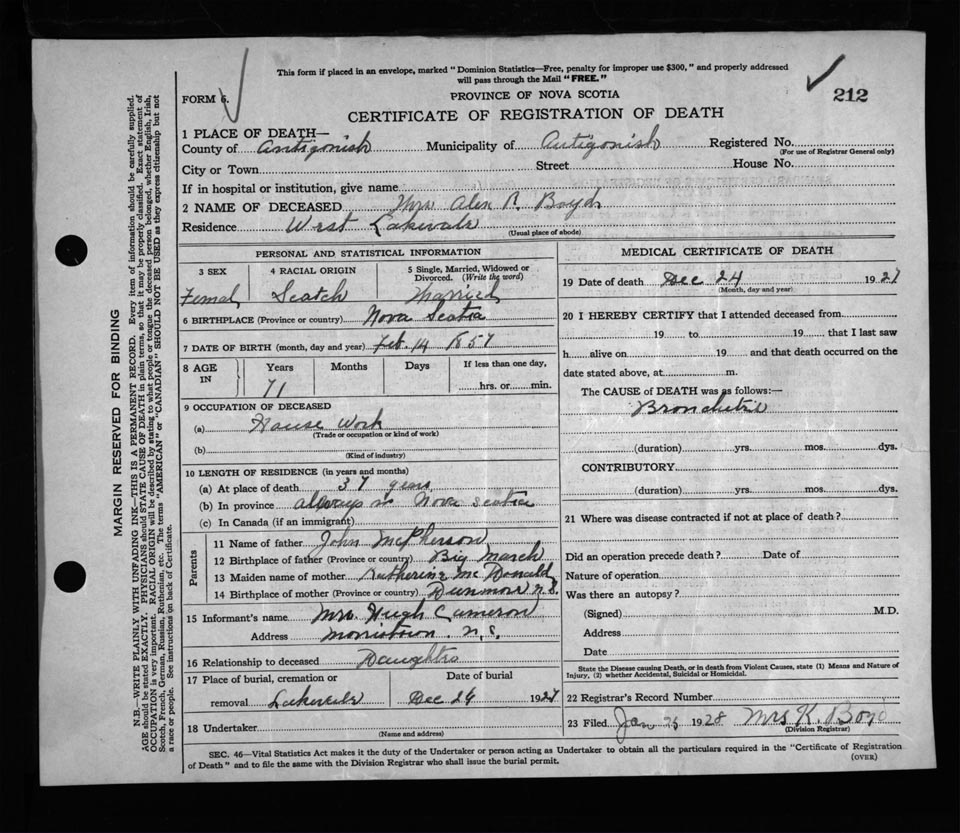 This form if placed in an envelope, marked "Dominion Statistics—Free, penalty for improper use $300," and properly addressed
will pass through the Mail "FREE."
FORM 6. PROVINCE OF NOVA SCOTIA 212
CERTIFICATE OF REGISTRATION OF DEATH
1 PLACE OF DEATH—
County of Antigonish Municipality of Antigonish Registered No.
(For use of Registrar General only)
City or Town Street House No.
If in hospital or institution, give name
2 NAME OF DECEASED Mrs Alex R. Boyd
Residence West Lakevale
(Usual place of abode)
PERSONAL AND STATISTICAL INFORMATION
3 SEX 4 RACIAL ORIGIN 5 Single, Married, Widowed or Divorced. (Write the word)
Femal Scotch Married
6 BIRTHPLACE (Province or country) Nova Scotia
7 DATE OF BIRTH (month, day and year) Feb. 14 1857
8 AGE IN Years Months Days If less than one day,
71 hrs. or min.
9 OCCUPATION OF DECEASED
(a) House Work
(Trade or occupation or kind of work)
(b)
(Kind of industry)
10 LENGTH OF RESIDENCE (in years and months)
(a) At place of death 37 years
(b) In province allways in Nova Scotia
(c) In Canada (if an immigrant)
Parents
11 Name of father John McPherson
12 Birthplace of father (Province or country) Big March
13 Maiden name of mother Katherine McDonald
14 Birthplace of mother (Province or country) Dunmore N.S.
15 Informant's name Mrs. Hugh Cameron
Address Morristown. N.S.
16 Relationship to deceased Daughter
17 Place of burial, cremation or Date of burial
removal Lakevale Dec 26 1927
18 Undertaker
(Name and address)
MEDICAL CERTIFICATE OF DEATH
19 Date of death Dec 24 1927
(Month, day and year)
20 I HEREBY CERTIFY that I attended deceased from
19 to 19 that I last saw
h alive on 19 and that death occurred on the
date stated above, at m.
The CAUSE of DEATH was as follows:—
Bronchitis
(duration) yrs. mos. dys.
CONTRIBUTORY
(duration) yrs. mos. dys.
21 Where was disease contracted if not at place of death?
Did an operation precede death? Date of
Nature of operation
Was there an autopsy?
(Signed) M.D.
Address
Date
State the Disease causing Death, or in death from Violent Causes, state (1) Means and Nature of
Injury, (2) whether Accidental, Suicidal or Homicidal.
22 Registrar's Record Number
23 Filed Jan 25 1928 Mrs K. Boyd
(Division Registrar)
SEC. 46—Vital Statistics Act makes it the duty of the Undertaker or person acting as Undertaker to obtain all the particulars required in the "Certificate of Registration
of Death" and to file the same with the Division Registrar who shall issue the burial permit.
(OVER)
MARGIN RESERVED FOR BINDING
N.B.—WRITE PLAINLY WITH UNFADING INK—THIS IS A PERMANENT RECORD. Every item of information should be carefully supplied.
AGE should be stated EXACTLY. PHYSICIANS should STATE CAUSE OF DEATH in plain terms, so that it may be properly classified. Exact statement of
OCCUPATION is very important. RACIAL ORIGIN will be described by stating to what people or tongue the deceased person belonged, whether English, Irish,
Scotch, French, German, Russian, Ruthenian, etc. The terms "AMERICAN" or "CANADIAN" SHOULD NOT BE USED as they express citizenship but not
a race or people. See instructions on back of Certificate.